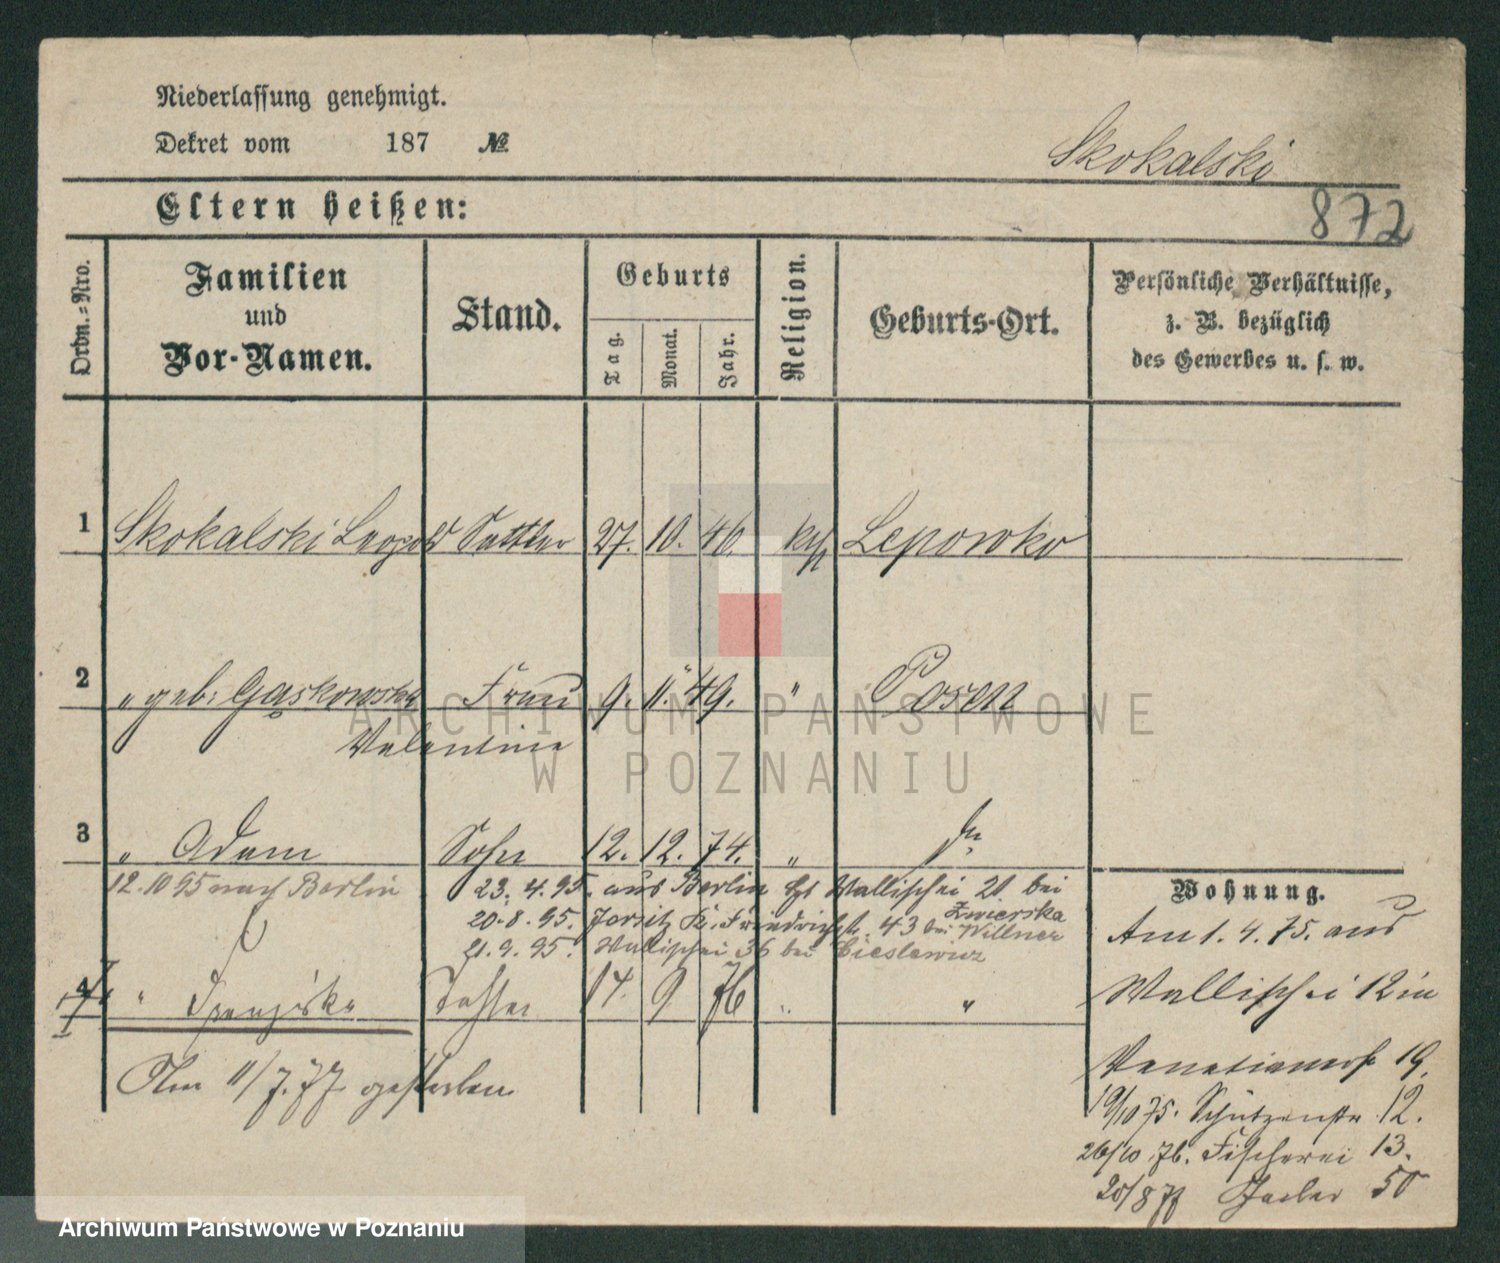 Niederlassung genehmigt.
Dekret vom 187 №
Skokalski
Eltern heißen:
872
Ordn.-Nro.
Familien und Vor-Namen.
Stand.
Geburts
Tag.
Monat.
Jahr.
Religion.
Geburts-Ort.
Persönliche Verhältnisse,
z. B. bezüglich
des Gewerbes u. s. w.
1 Skokalski Leopold Sattler 27. 10. 46. kth Lepowko
2 " geb: Gąskowska Frau 9. 11. 49. " Posen
Valentine
ARCHIWUM PAŃSTWOWE
W POZNANIU
3 " Adam Sohn 12. 12. 74. " do
12.10 95 nach Berlin 23. 4. 95. aus Berlin Wallischei 21 bei
Zwierska
20. 8. 95. Friedrichstr. 43 bei Willner
21. 9. 95. Wallischei 36 bei Cieslewicz
Wohnung.
Am 1. 4. 75. aus
Wallischei 12 in
Venetianerstr 19.
19/10 75. Schützenstr 12.
26/10 76. Fischerei 13.
20/8 77 50
4 " Franziska Tochter 14. 9 76 " "
Am 11/7. 77 gestorben
Archiwum Państwowe w Poznaniu